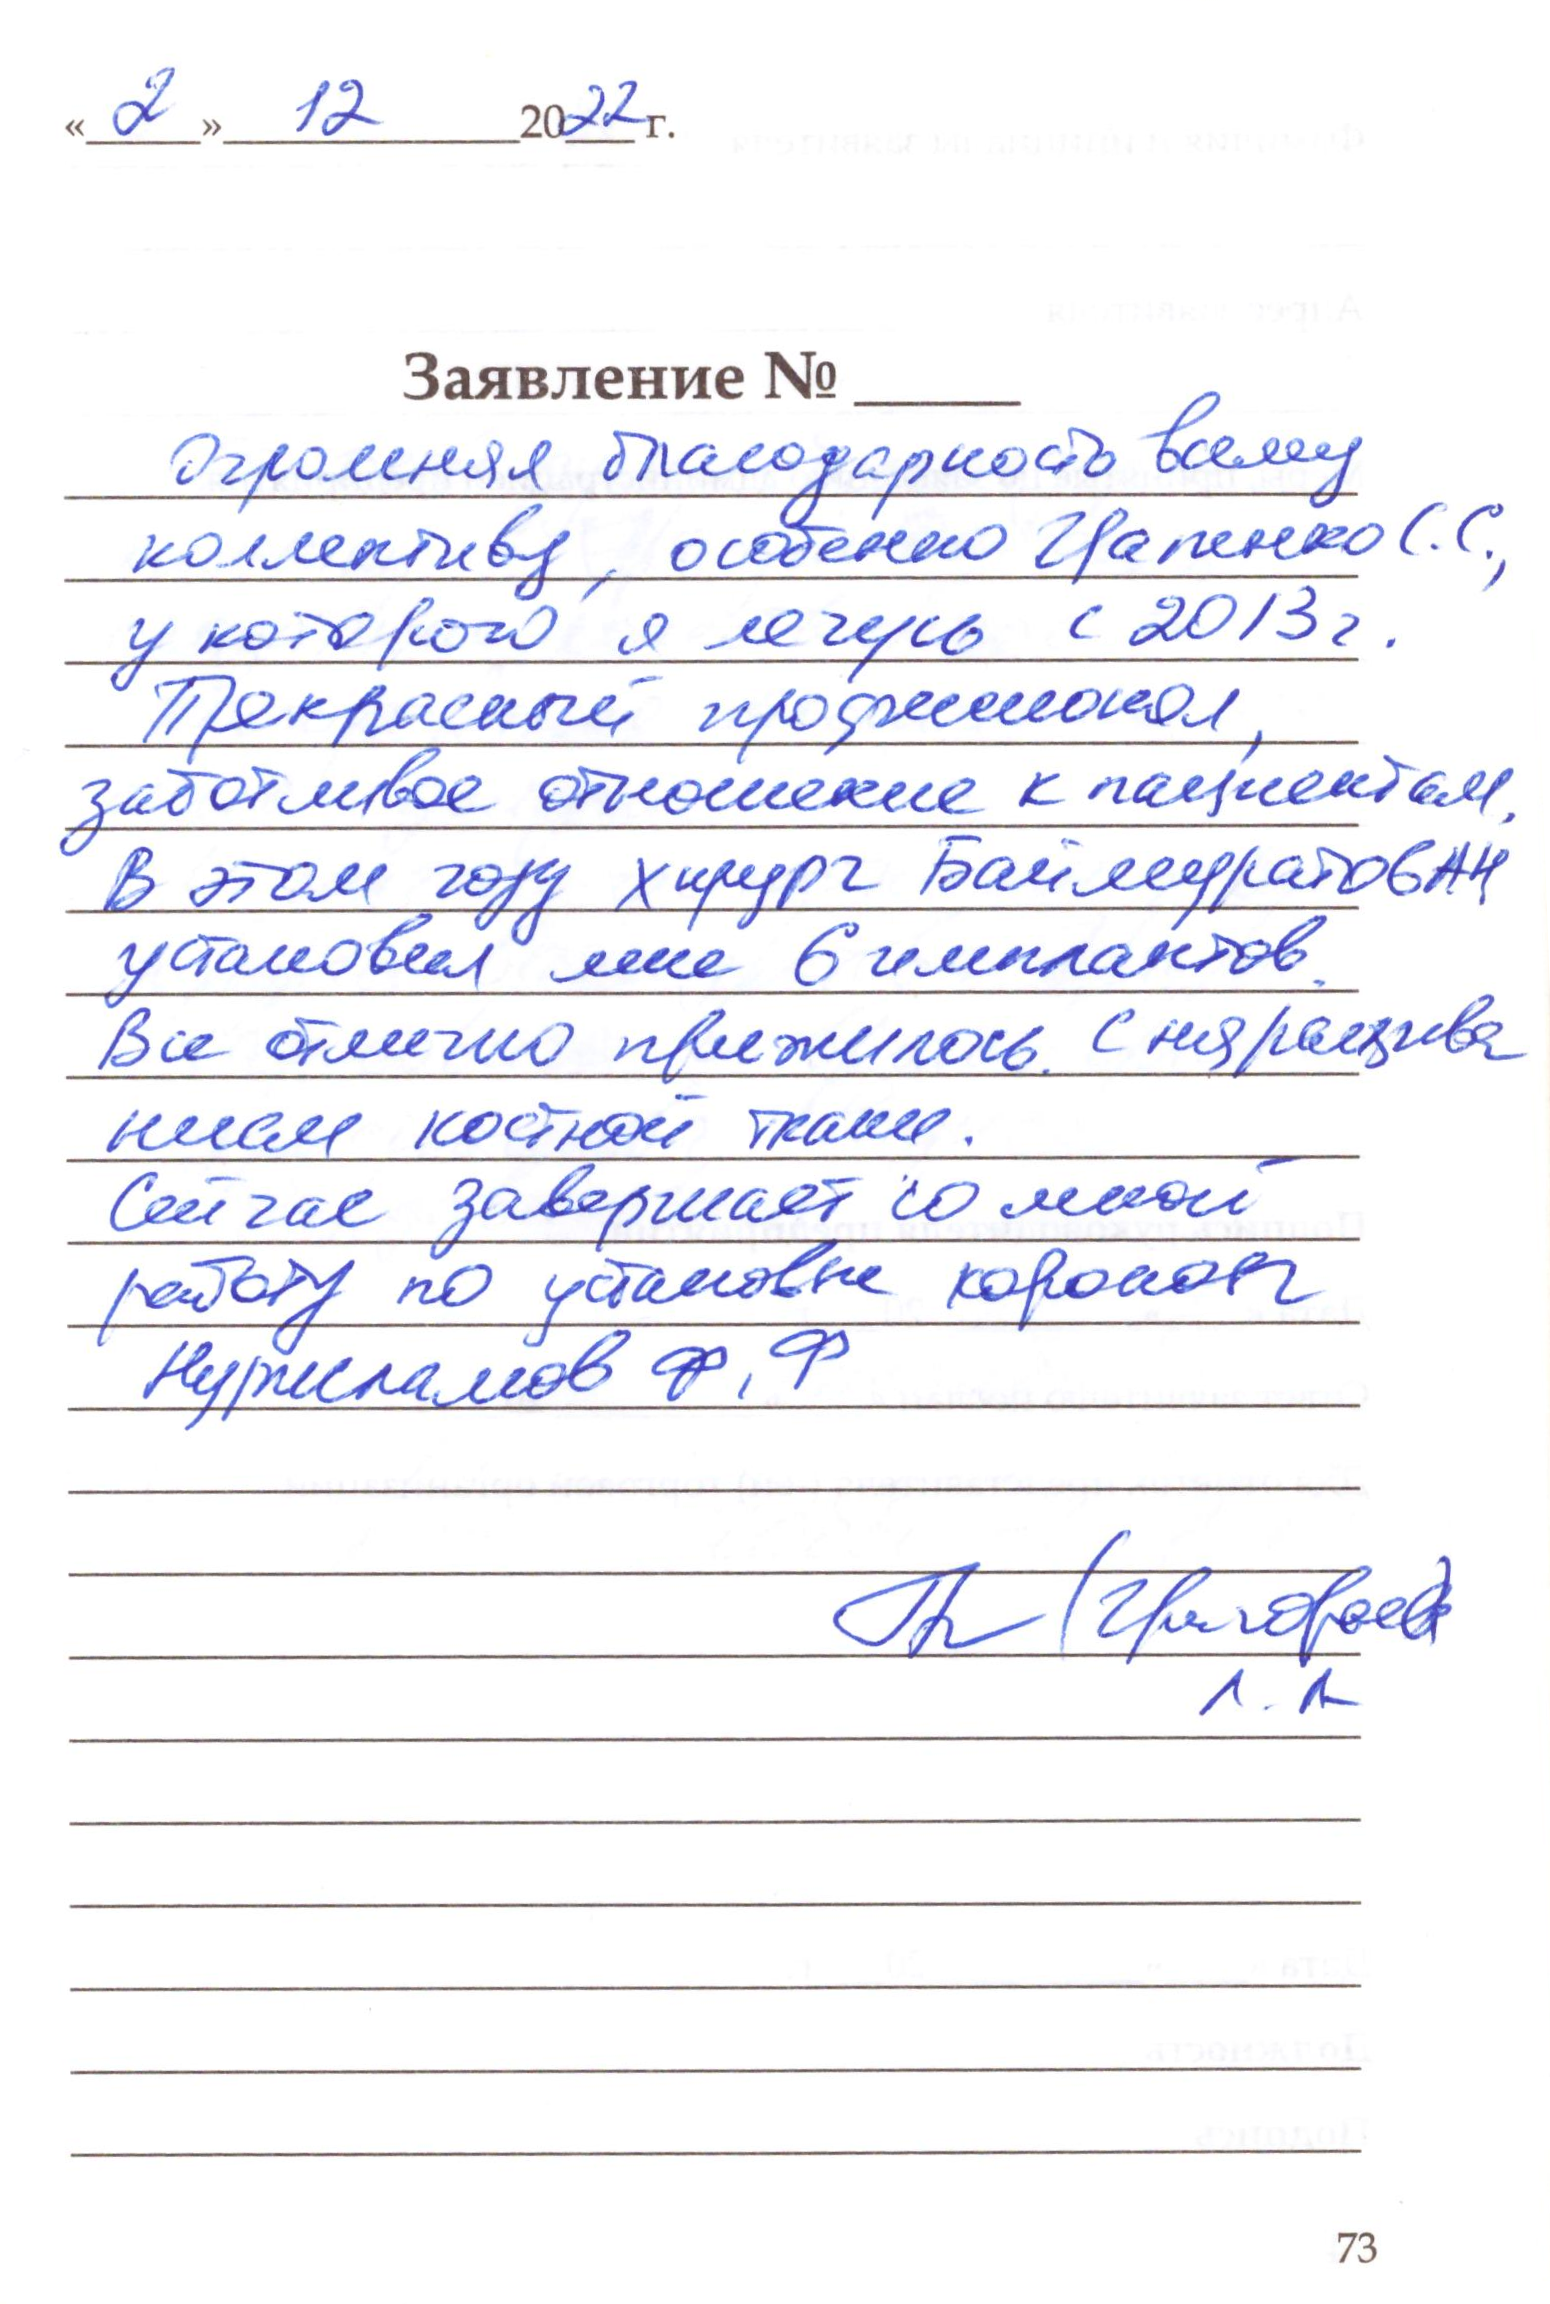 «2» 12 2022 г.
Заявление №
Огромная благодарность всему
коллективу, особенно Цапенко С.С.,
у которого я лечусь с 2013 г.
Прекрасный профессионал,
заботливое отношение к пациентам.
В этом году хирург Баймуратов АЦ
установил мне 6 имплантов.
Все отлично прижилось. С наращива
нием костной ткани.
Сейчас завершает со мной
работу по установке коронок
Нурисламов Ф.Ф
(Григорьев)
Л.А
73